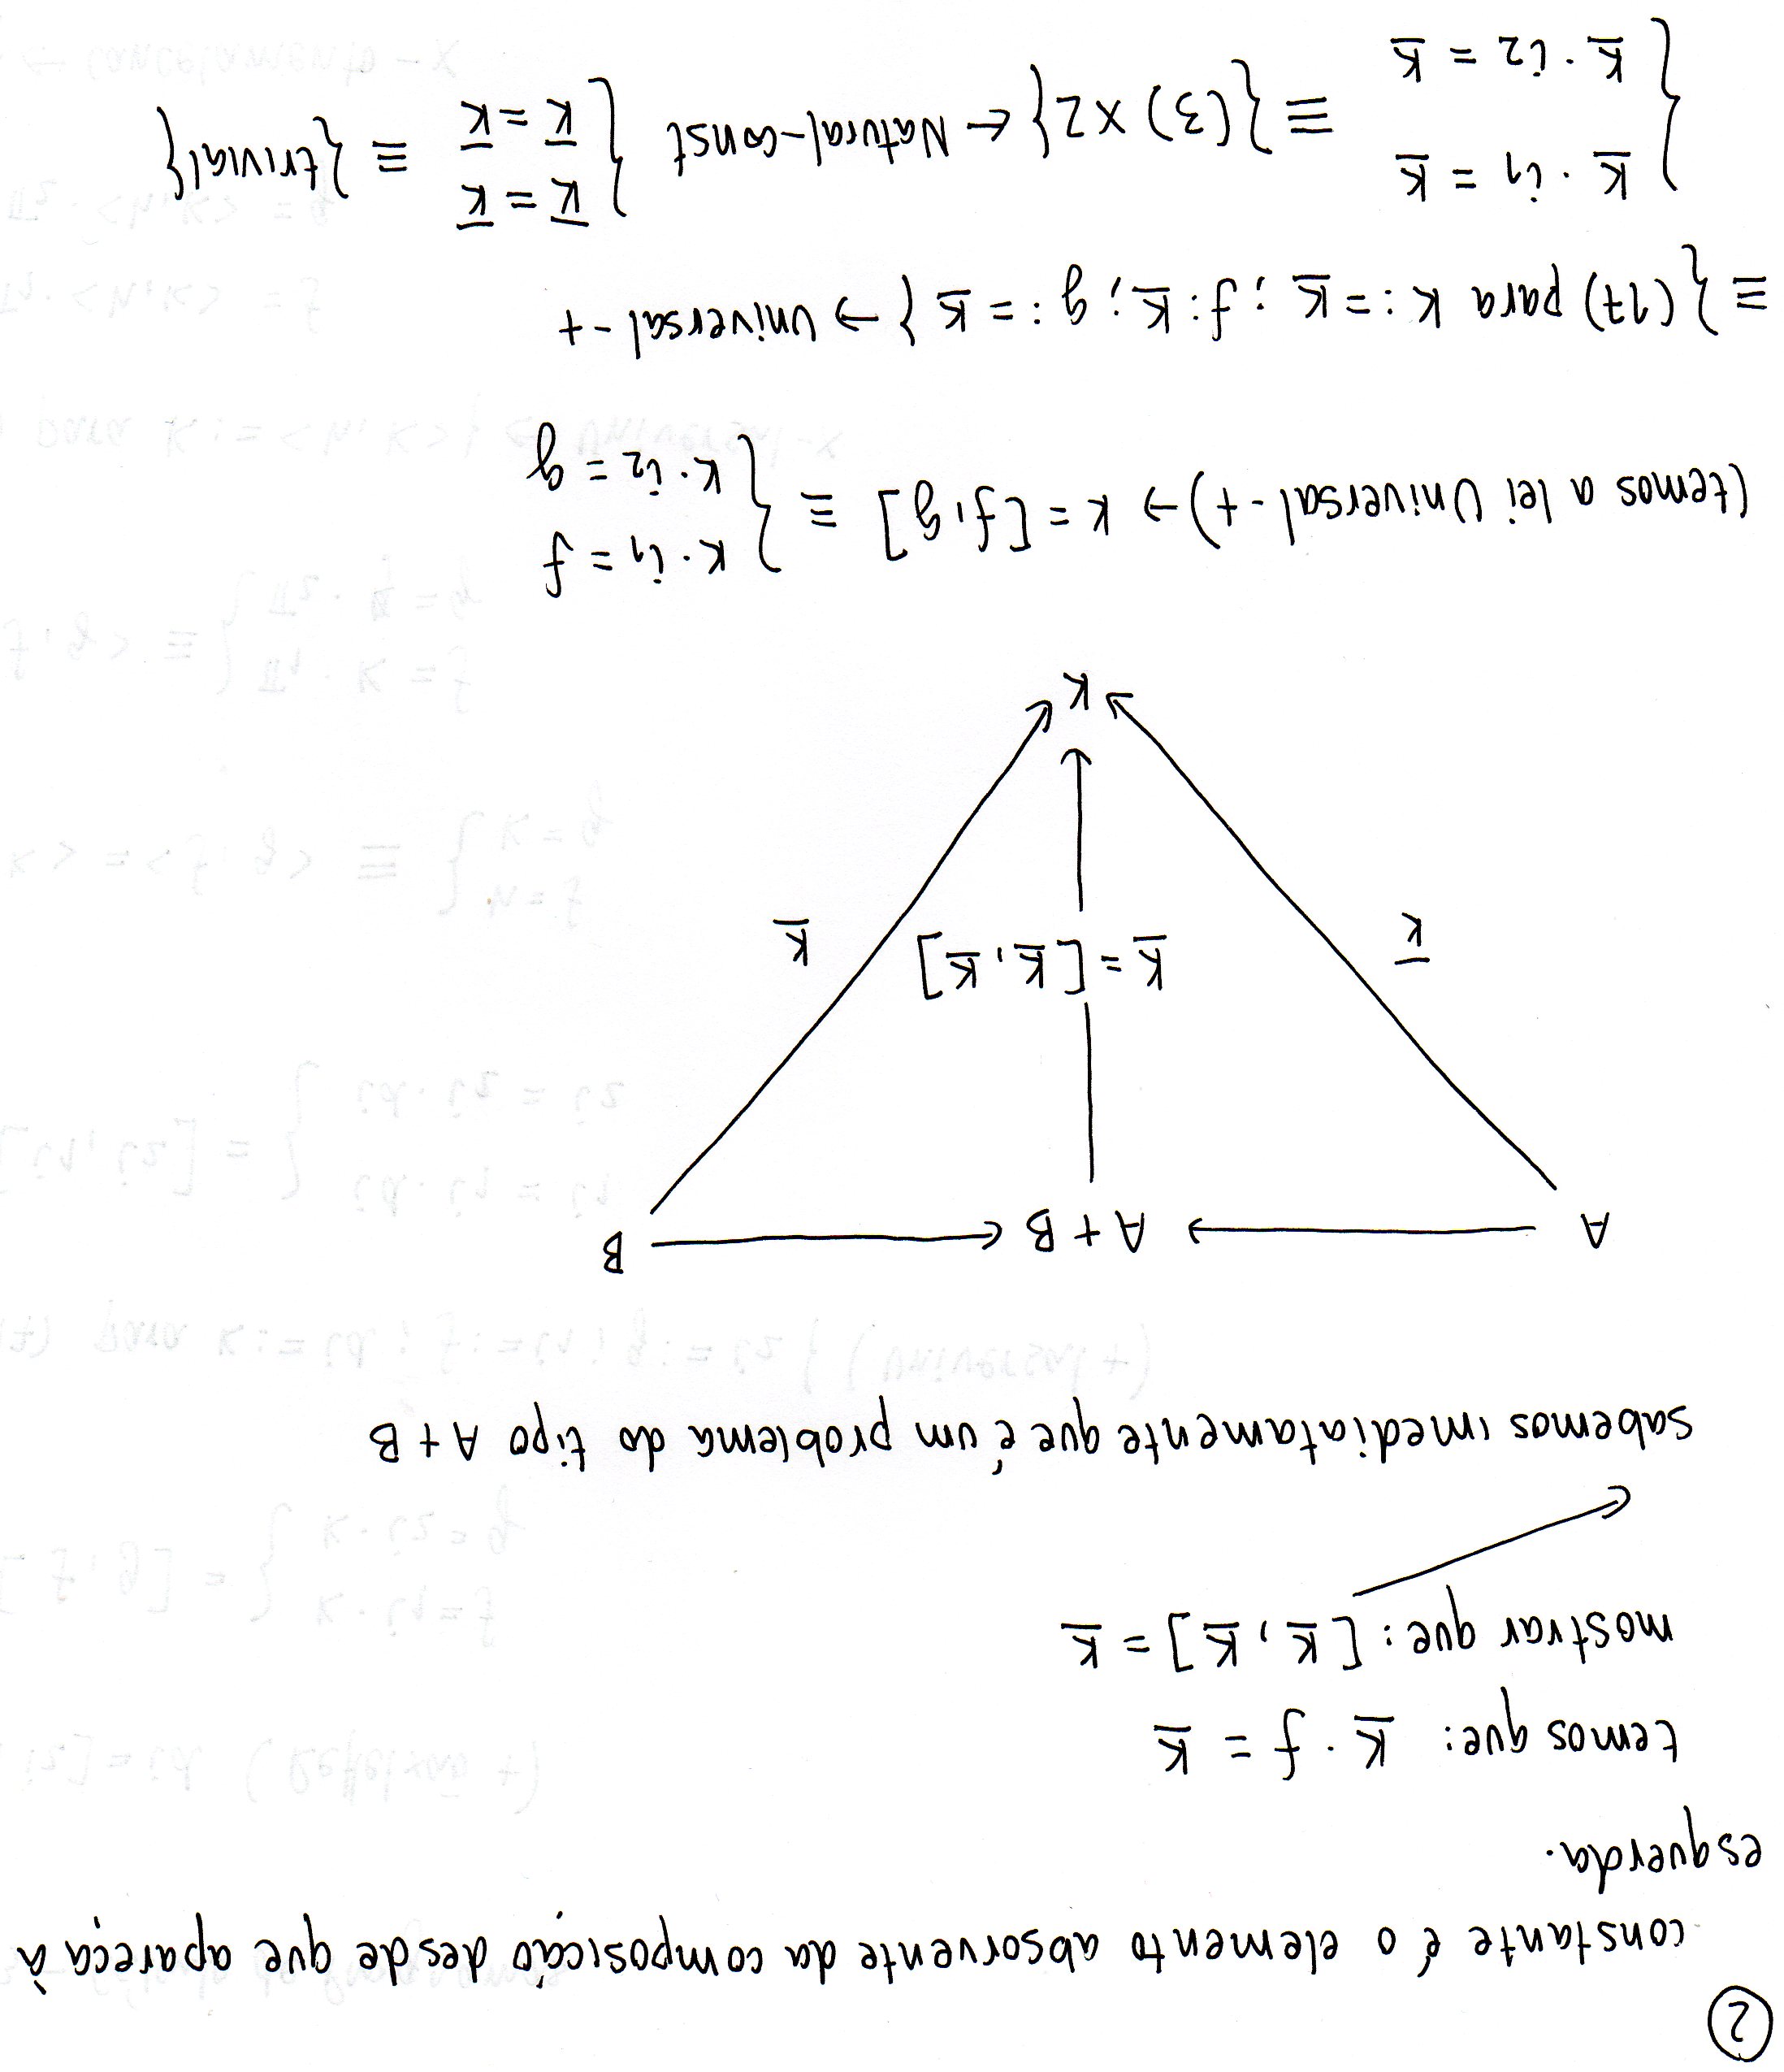 ②
constante é o elemento absorvente da composição desde que apareça à
esquerda.
temos que: K̲ · f = K̲
mostrar que: [K̲, K̲] = K̲
sabemos imediatamente que é um problema do tipo A + B
A → A + B ← B
K̅ K̲ = [K̲, K̲] K̲
K
(temos a lei Universal - +) → K = [f, g] ≡ { K · i₁ = f
K · i₂ = g
≡ { (17) para K := K̲ ; f: K̲ ; g := K̲ } → Universal - +
{ K̲ · i₁ = K̲
K̲ · i₂ = K̲ ≡ { (3) x2 } ← Natural-const { K̅ = K̅
K̅ = K̅ ≡ { trivial {